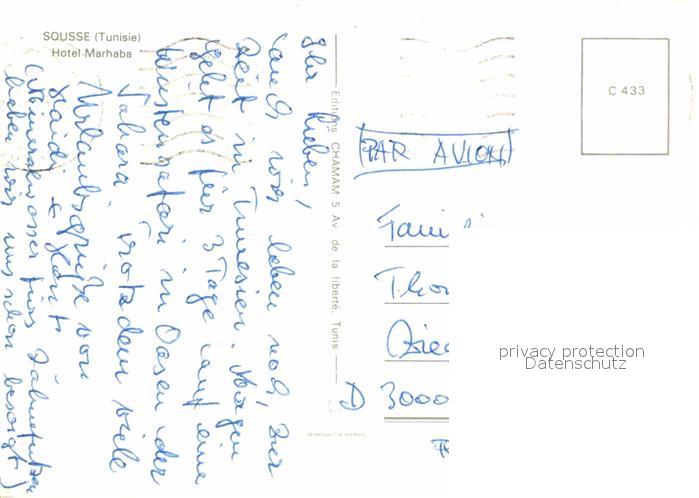 SOUSSE (Tunisie)
Hotel Marhaba
Ihr Lieben,
auch wir leben noch, zur
Zeit in Tunesien. Morgen
geht es für 3 Tage auf eine
Wüstensafari in Oasen der
Sahara. Trotzdem viele
Urlaubsgrüße von
Haidi & Hans
(Mineralwasser fürs Zähneputzen
haben wir uns schon besorgt)
Editions CHAMAM 5 Av. de la liberté, Tunis
C 433
PAR AVION
Fami
D 3000
privacy protection
Datenschutz